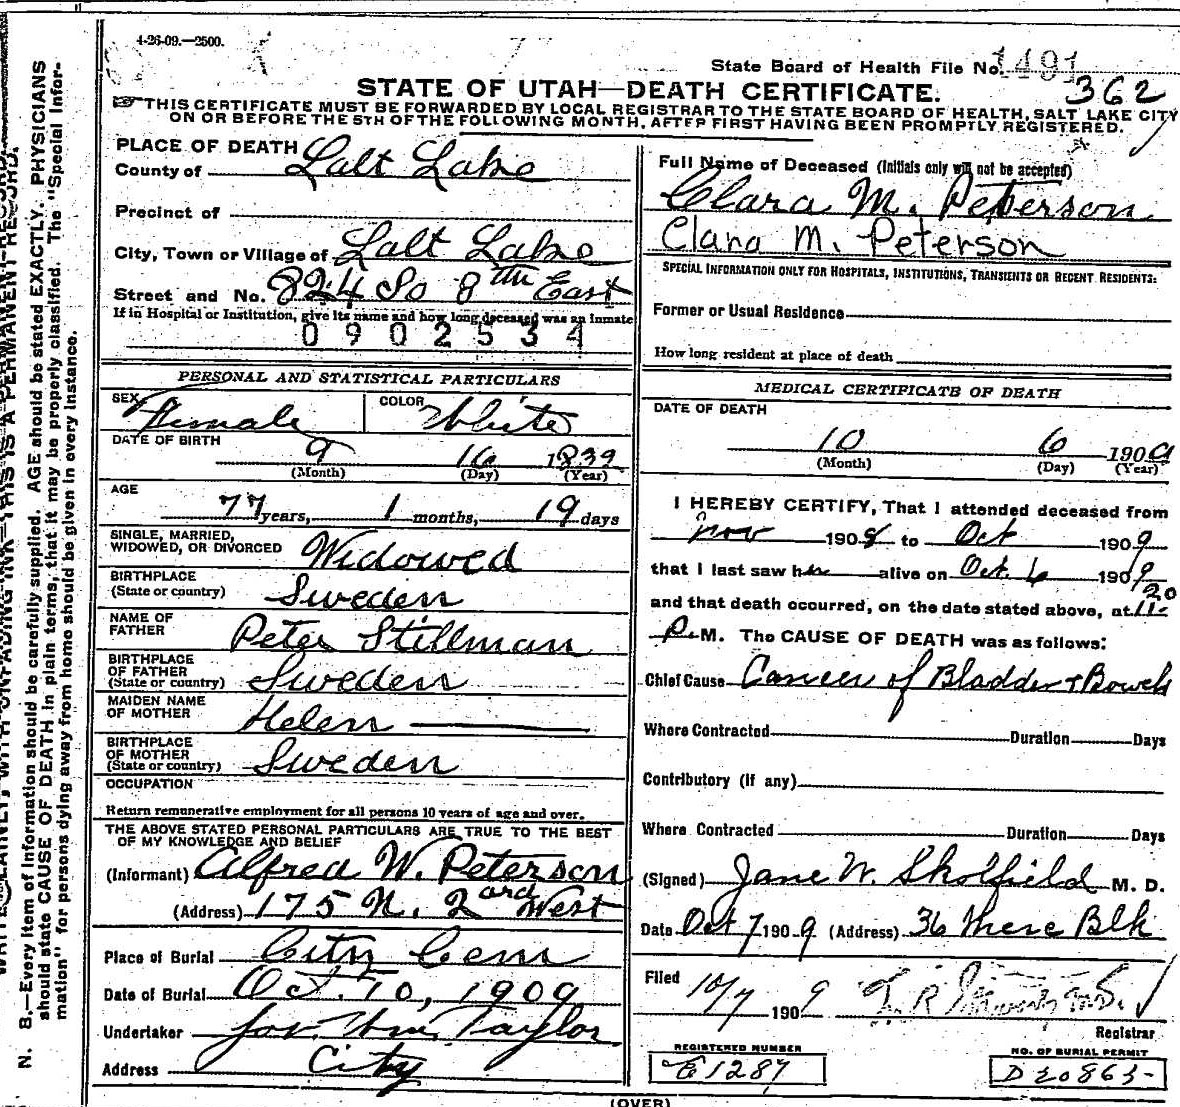 4-26-09.—2500.
State Board of Health File No. 1491
362
STATE OF UTAH—DEATH CERTIFICATE.
THIS CERTIFICATE MUST BE FORWARDED BY LOCAL REGISTRAR TO THE STATE BOARD OF HEALTH, SALT LAKE CITY
ON OR BEFORE THE 5TH OF THE FOLLOWING MONTH, AFTER FIRST HAVING BEEN PROMPTLY REGISTERED.
PLACE OF DEATH
County of Salt Lake
Precinct of
City, Town or Village of Salt Lake
Street and No. 824 So 8th East
If in Hospital or Institution, give its name and how long deceased was an inmate
0902534
Full Name of Deceased (Initials only will not be accepted)
Clara M. Peterson
Clara M. Peterson
SPECIAL INFORMATION ONLY FOR HOSPITALS, INSTITUTIONS, TRANSIENTS OR RECENT RESIDENTS:
Former or Usual Residence
How long resident at place of death
PERSONAL AND STATISTICAL PARTICULARS
SEX Female COLOR White
DATE OF BIRTH
9 16 1839
(Month) (Day) (Year)
AGE
77 years, 1 months, 19 days
SINGLE, MARRIED,
WIDOWED, OR DIVORCED Widowed
BIRTHPLACE
(State or country) Sweden
NAME OF
FATHER Peter Stillman
BIRTHPLACE
OF FATHER
(State or country) Sweden
MAIDEN NAME
OF MOTHER Helen
BIRTHPLACE
OF MOTHER
(State or country) Sweden
OCCUPATION
Return remunerative employment for all persons 10 years of age and over.
THE ABOVE STATED PERSONAL PARTICULARS ARE TRUE TO THE BEST
OF MY KNOWLEDGE AND BELIEF
(Informant) Alfred W. Peterson
(Address) 175 N. 2nd West
Place of Burial City Cem
Date of Burial Oct. 10, 1909
Undertaker Jos. Wm. Taylor
Address City
MEDICAL CERTIFICATE OF DEATH
DATE OF DEATH
10 6 1909
(Month) (Day) (Year)
I HEREBY CERTIFY, That I attended deceased from
Nov 1908 to Oct 1909
that I last saw her alive on Oct. 6 1909
and that death occurred, on the date stated above, at 11 20
P. M. The CAUSE OF DEATH was as follows:
Chief Cause Cancer of Bladder + Bowels
Where Contracted Duration Days
Contributory (if any)
Where Contracted Duration Days
(Signed) Jane W. Skolfield M. D.
Date Oct 7 1909 (Address) 36 Blk
Filed 10/7 1909
Registrar
REGISTERED NUMBER
E1287
NO. OF BURIAL PERMIT
D20865
(OVER)
N. B.—Every item of information should be carefully supplied. AGE should be stated EXACTLY. PHYSICIANS
should state CAUSE OF DEATH in plain terms, that it may be properly classified. The "Special Infor-
mation" for persons dying away from home should be given in every instance.